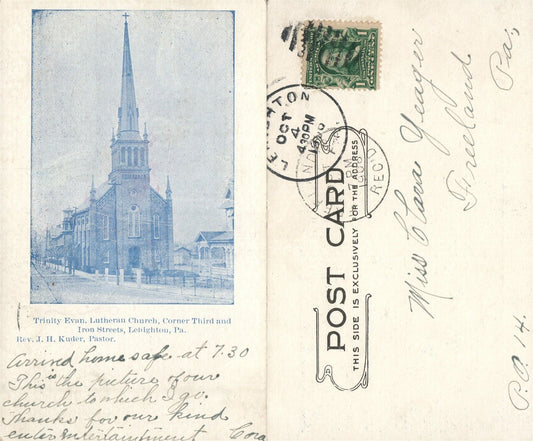 Trinity Evan. Lutheran Church, Corner Third and
Iron Streets, Lehighton, Pa.
Rev. J. H. Kuder, Pastor.
Arrived home safe at 7.30
This is the picture of our
church to which I go.
Thanks for our kind
entertainment Cora
LEHIGHTON
OCT
4
430PM
REC'D
POST CARD
THIS SIDE IS EXCLUSIVELY FOR THE ADDRESS
Miss Clara Yeager
Freeland
Pa,
P.O. 14.